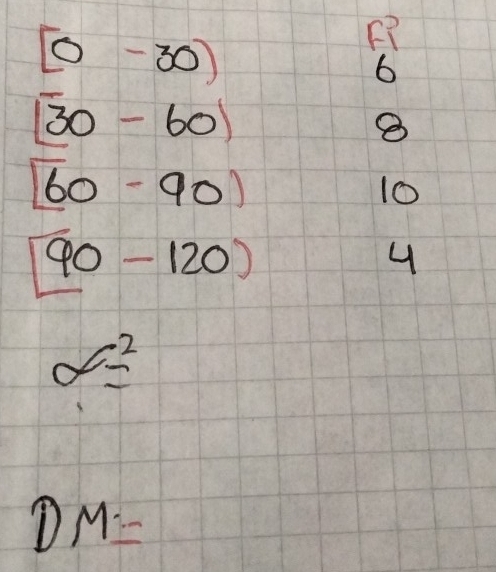 Fi
[0 - 30) 6
[30 - 60) 8
[60 - 90) 10
[90 - 120) 4
∝²=
DM:=